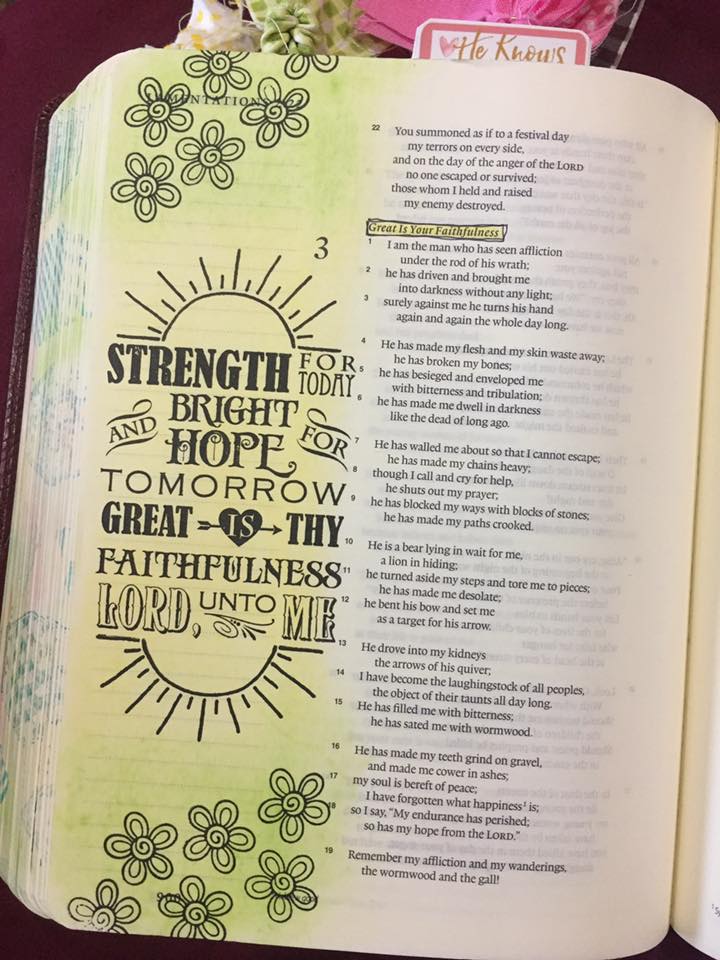 He Knows
LAMENTATIONS
22 You summoned as if to a festival day
my terrors on every side,
and on the day of the anger of the LORD
no one escaped or survived;
those whom I held and raised
my enemy destroyed.
Great Is Your Faithfulness
3
1 I am the man who has seen affliction
under the rod of his wrath;
2 he has driven and brought me
into darkness without any light;
3 surely against me he turns his hand
again and again the whole day long.
4 He has made my flesh and my skin waste away;
he has broken my bones;
5 he has besieged and enveloped me
with bitterness and tribulation;
6 he has made me dwell in darkness
like the dead of long ago.
7 He has walled me about so that I cannot escape;
he has made my chains heavy;
8 though I call and cry for help,
he shuts out my prayer;
9 he has blocked my ways with blocks of stones;
he has made my paths crooked.
10 He is a bear lying in wait for me,
a lion in hiding;
11 he turned aside my steps and tore me to pieces;
he has made me desolate;
12 he bent his bow and set me
as a target for his arrow.
13 He drove into my kidneys
the arrows of his quiver;
14 I have become the laughingstock of all peoples,
the object of their taunts all day long.
15 He has filled me with bitterness;
he has sated me with wormwood.
16 He has made my teeth grind on gravel,
and made me cower in ashes;
17 my soul is bereft of peace;
I have forgotten what happiness¹ is;
18 so I say, “My endurance has perished;
so has my hope from the LORD.”
19 Remember my affliction and my wanderings,
the wormwood and the gall!
STRENGTH FOR TODAY
AND BRIGHT HOPE FOR
TOMORROW
GREAT IS THY
FAITHFULNESS
LORD, UNTO ME